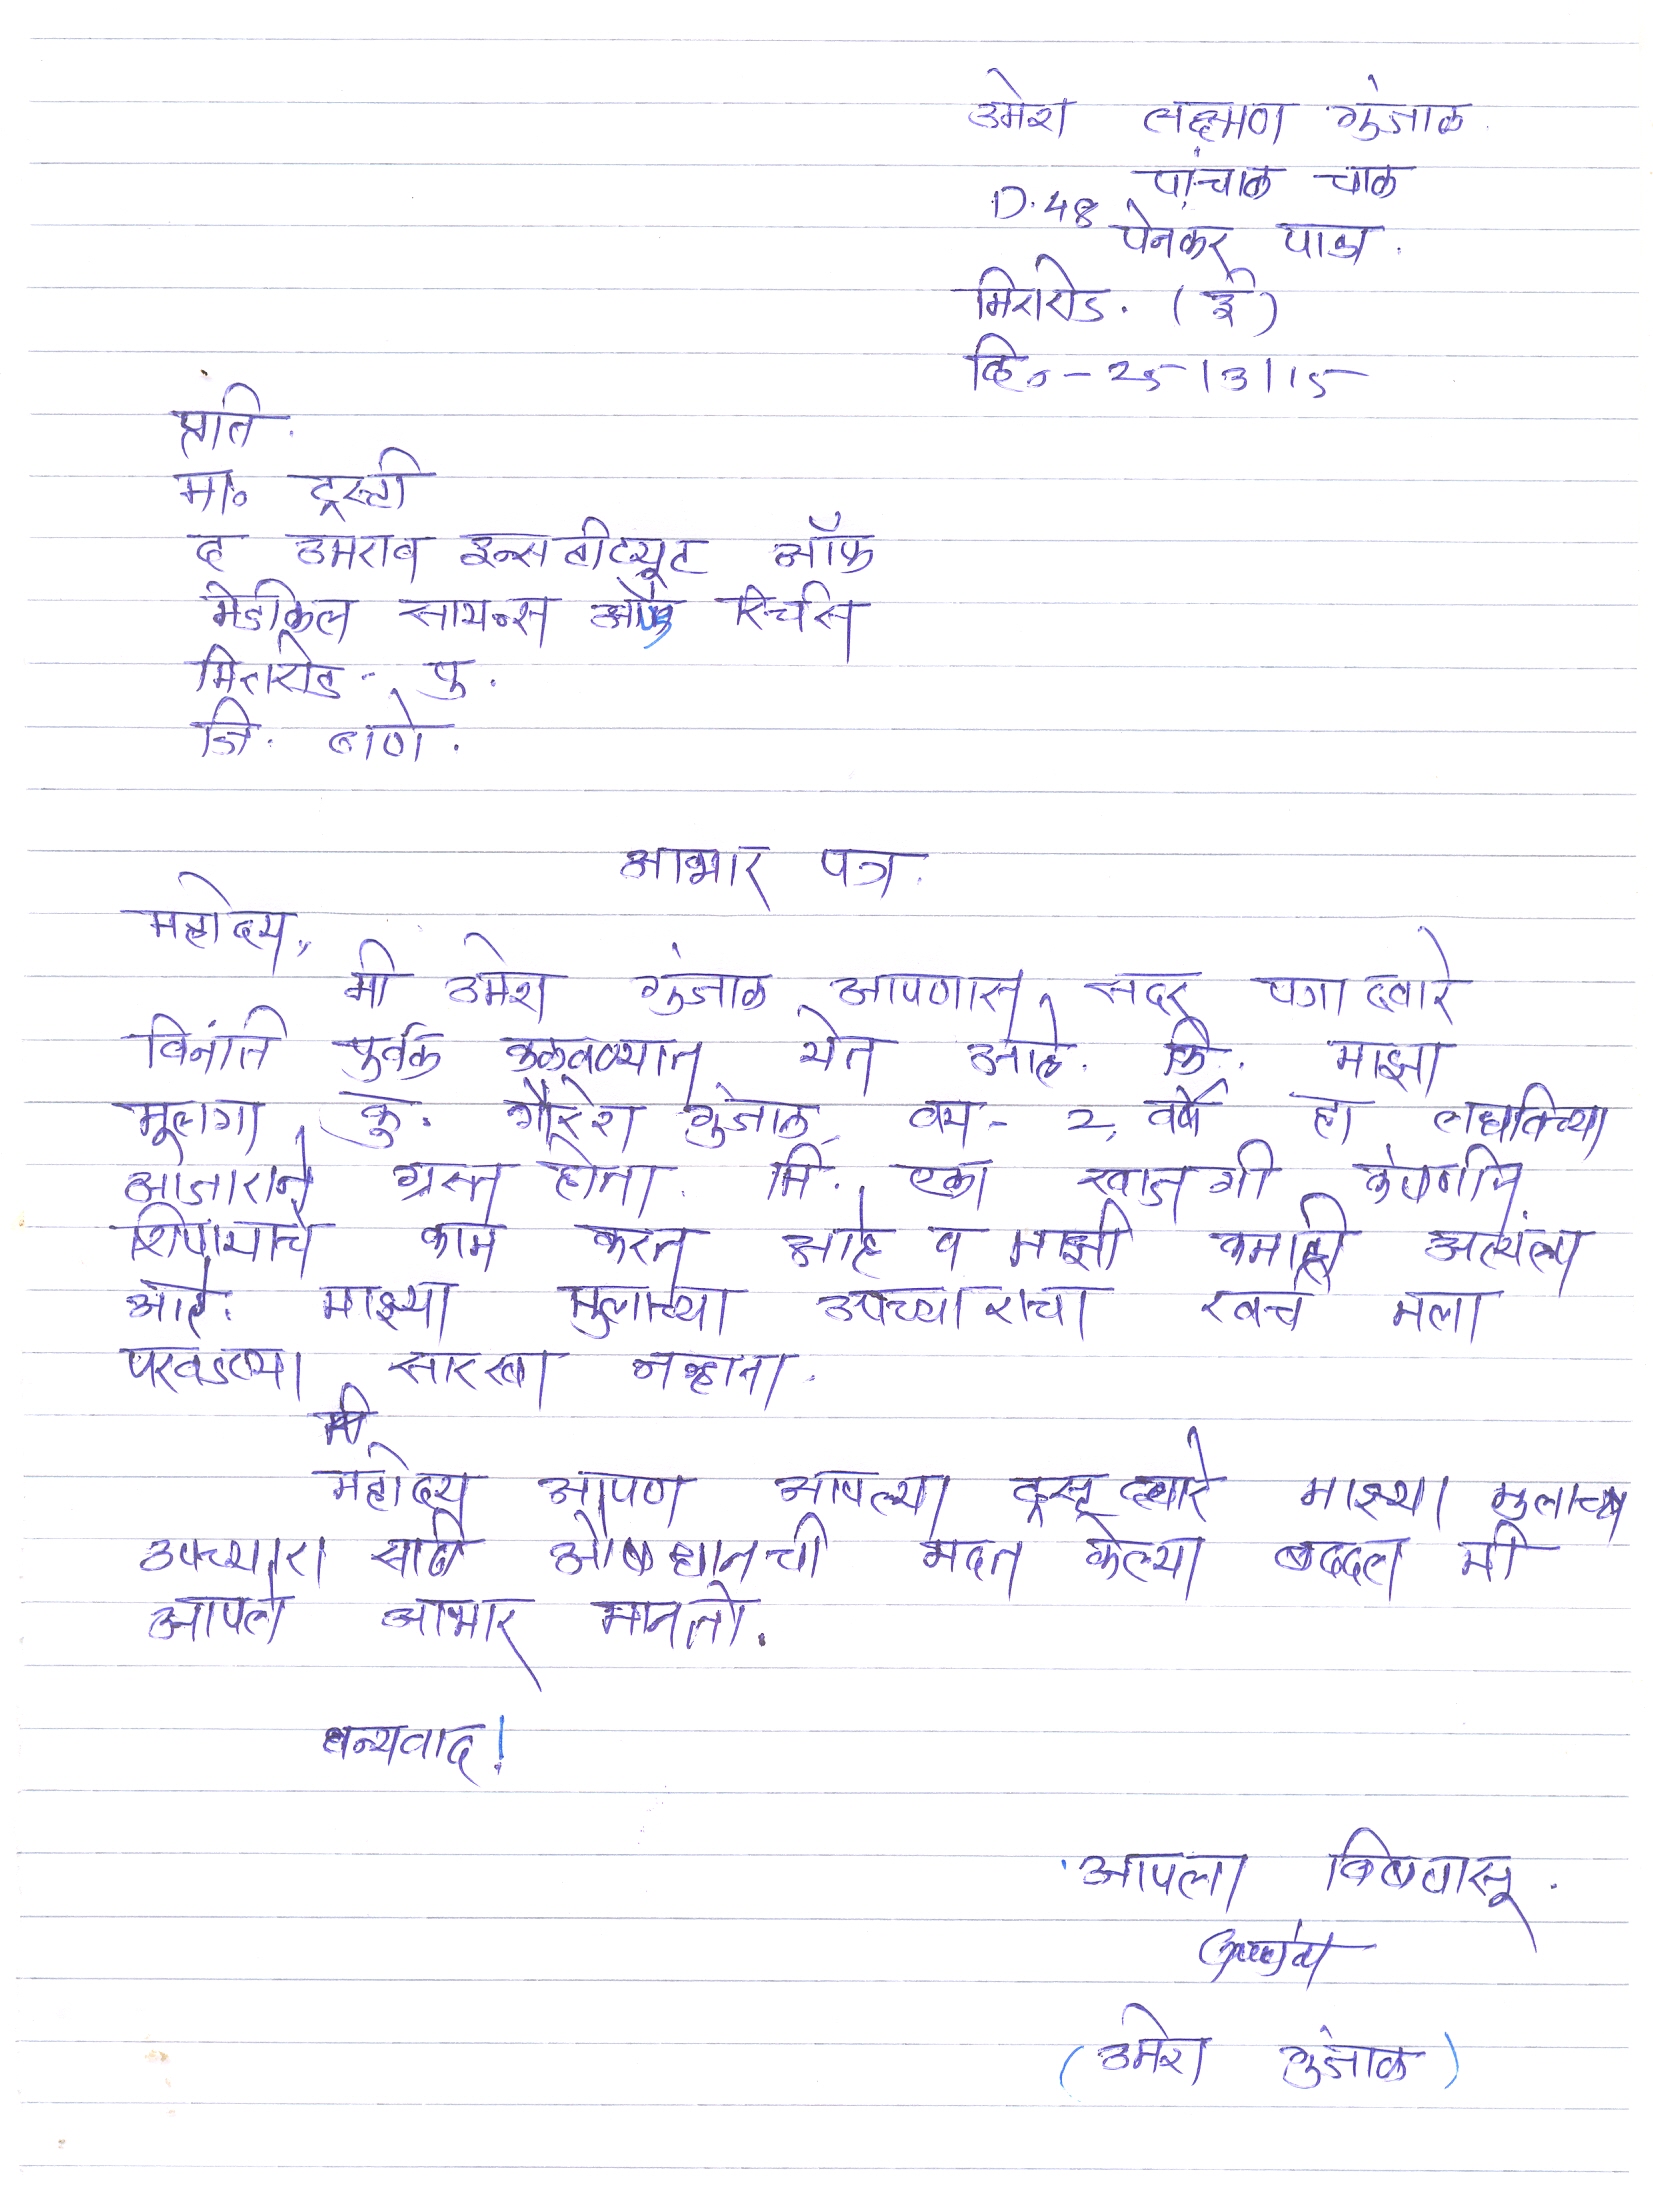 उमेश लक्ष्मण गुंजाळ.
पांचाळ चाळ
D.48 पेनकर पाडा.
मिरारोड. (ई)
दि०-25/3/15
प्रति.
मा० ट्रस्टी
द उमराव इन्सटीट्युट ऑफ
मेडीकल सायन्स ऑफ रिर्चस
मिरारोड - पु.
जि. ठाणे.
आभार पत्र.
महोदय,
मी उमेश गुंजाळ आपणास सदर पत्राद्वारे
विनंति पुर्वक कळवण्यात येत आहे. कि. माझा
मूलगा कु. गौरेश गुंजाळ, वय - 2, वर्षे हा
आजाराने ग्रस्त होता. मि. एका खाजगी कंपणीत
शिपायाचे काम करत आहे व माझी कमाही अत्यंल्प
आहे. माझ्या मुलाच्या उपच्याराचा खर्च मला
परवडण्या सारखा नव्हता.
महोदय आपण आपल्या ट्रस्ट द्वारे माझ्या मुलाच्या
उपच्यारा साठी औषधानची मदत केल्या बद्दल मी
आपले आभार मानतो.
धन्यवाद!
आपला विषवासू.
(उमेश गुंजाळ)